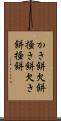 かき餅欠餅
掻き餅欠き
餅掻餅